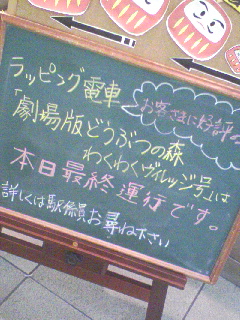 ラッピング電車
お客さまに好評
「劇場版どうぶつの森
わくわくヴィレッジ号」は
本日最終運行です。
詳しくは駅係員お尋ね下さい